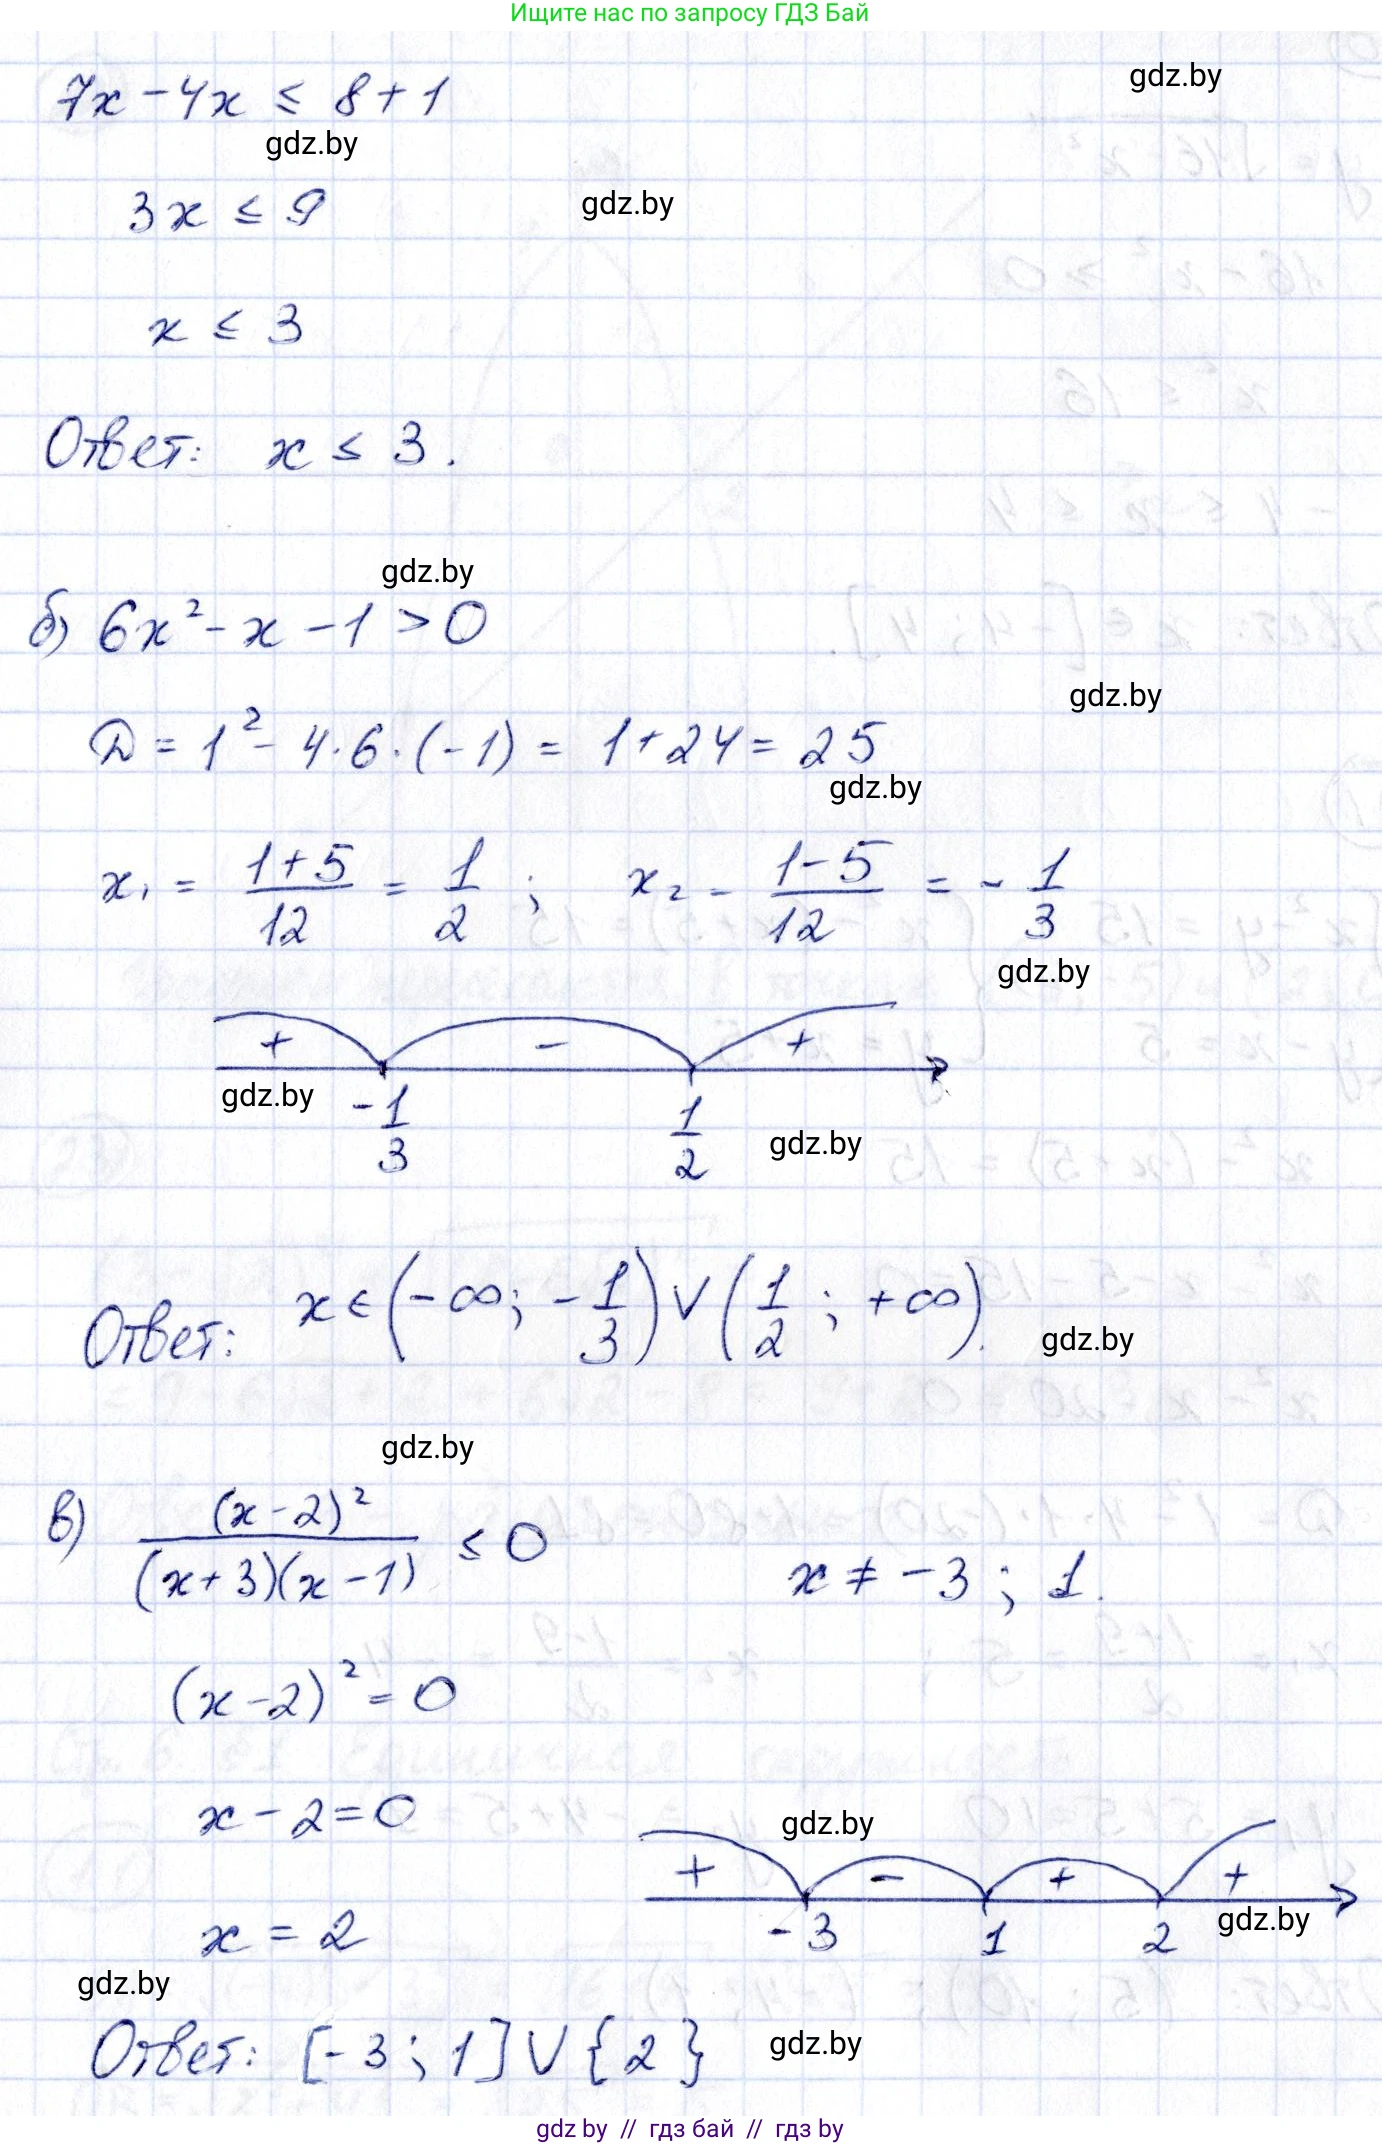 Ищите нас по запросу ГДЗ Бай
gdz.by
7x - 4x ≤ 8 + 1
gdz.by
3x ≤ 9
gdz.by
x ≤ 3
Ответ: x ≤ 3.
gdz.by
б) 6x² - x - 1 > 0
gdz.by
D = 1² - 4·6·(-1) = 1 + 24 = 25
gdz.by
x₁ = (1+5)/12 = 1/2 ; x₂ = (1-5)/12 = -1/3
gdz.by
+ - +
gdz.by -1/3 1/2 gdz.by
Ответ: x ∈ (-∞; -1/3) ∨ (1/2 ; +∞).
gdz.by
gdz.by
в) (x-2)²/((x+3)(x-1)) ≤ 0 x ≠ -3 ; 1.
(x-2)² = 0
x - 2 = 0
gdz.by
+ - + +
gdz.by
x = 2 -3 1 2
gdz.by
Ответ: [-3 ; 1] ∨ {2}
gdz.by
gdz by // гдз бай // гдз by